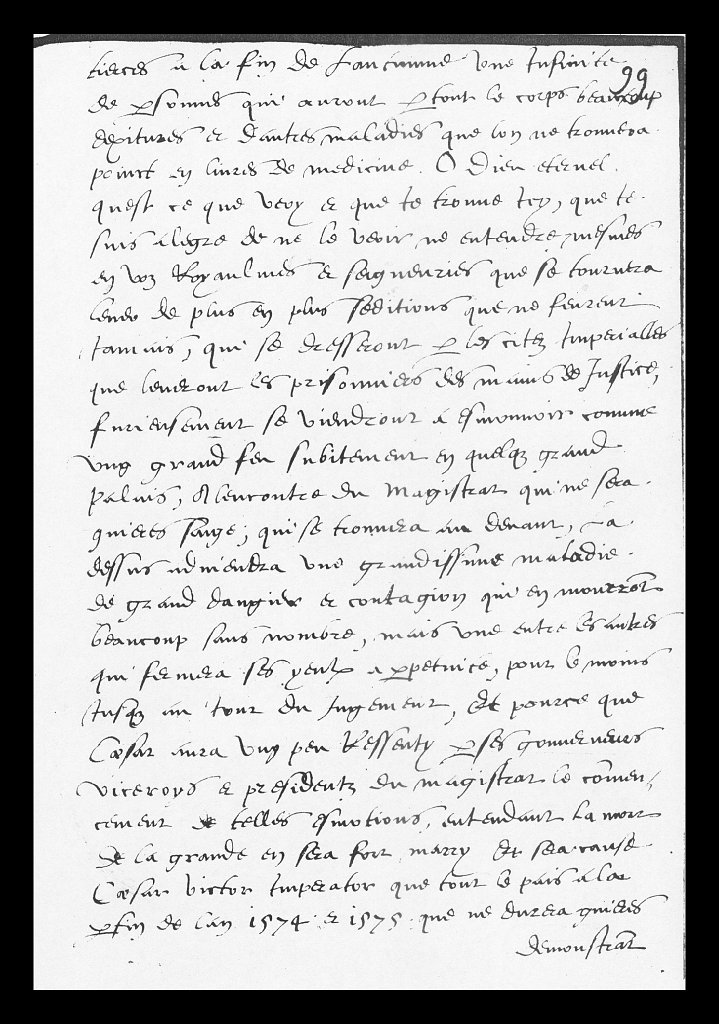 tierces a la fin de Lautumne une Infinite
99
de personnes qui auront par tout le corps beaucoup
dexitures et dautres maladies que lon ne trouvera
poinct en livres de medicine. O Dieu eternel.
quest ce que veoy et que Ie trouve Icy, que Ie
suis alegre de ne le veoir ne entendre, mesmes
en voz Royaulmes et seigneuries que se tournera
de plus en plus seditions que ne feurent
Iamais, qui se dresseront par les citez Imperialles
que leveront les prisonniers des mains de Justice,
furieusement se viendront a esmouvoir comme
ung grand feu subitement en quelque grand
palais, A lencontre du Magistrat qui ne sera
guieres saige, qui se trouvera au devant, La
dessus adviendra une grandissime maladie.
de grand dangier et contagion qui en mourront
beaucoup sans nombre, mais une entre les autres
qui fermera ses yeulx a perpetuite, pour le moins
Iusques au Iour du Iugement, Et pource que
Cæsar aura ung peu Ressenty par ses gouverneurs
viceroys et presidentz du magistrat le commen-
cement de telles esmotions, entendant la mort
de la grande en sera fort marry Et sera cause
Cæsar victor Imperator que tout le pais a la
parfin de lan 1574 et 1575 que ne durera guieres
demonstrant